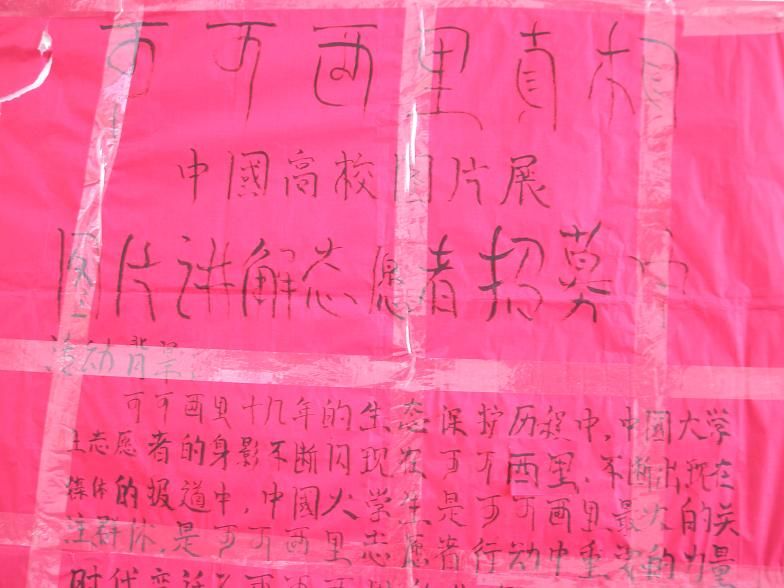 可可西里真相
中國高校图片展
图片讲解志愿者招募中
活动背景
可可西里十几年的生态保护历程中，中国大学
生志愿者的身影不断闪现在可可西里，不断出现在
媒体的报道中，中国大学生是可可西里最大的关
注群体，是可可西里志愿者行动中重要的力量
时代变迁